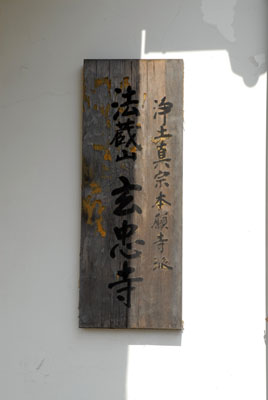 浄土真宗本願寺派
法蔵山玄忠寺